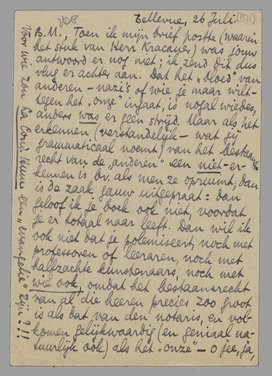 Bellevue, 26 Juli
B.M., Toen ik mijn brief postte (waarin
het stuk van Herr Kracauer) was jouw
antwoord er nog niet; ik zend dit dus
vlug er achter aan. Dat het "bloed" van
anderen – nazi's of wie je maar wilt –
tegen het "onze" ingaat, is nogal wiedes,
anders was er geen strijd. Maar als het
erkennen (verstandelijk – wat jij
grammaticaal noemt) van het bestaans-
recht van de "anderen" een niet-er-
kennen is bv. als men ze opruimt, dan
is de zaak gauw uitgepraat: dan
geloof ik je boek ook niet, voordat
je er totaal naar leeft. Dan wil ik
ook niet dat je polemiseert, noch met
professoren of leeraren, noch met
halfzachte kunstenaars, noch met
wie ook, omdat het bestaansrecht
van al die heeren precies zoo groot
is als dat van den notaris, en vol-
komen gelijkwaardig (en geniaal na-
tuurlijk ook) als het "onze" – O jee, ja,
Voor wie zou La Cond. Hum. een "evangelie" zijn?!!